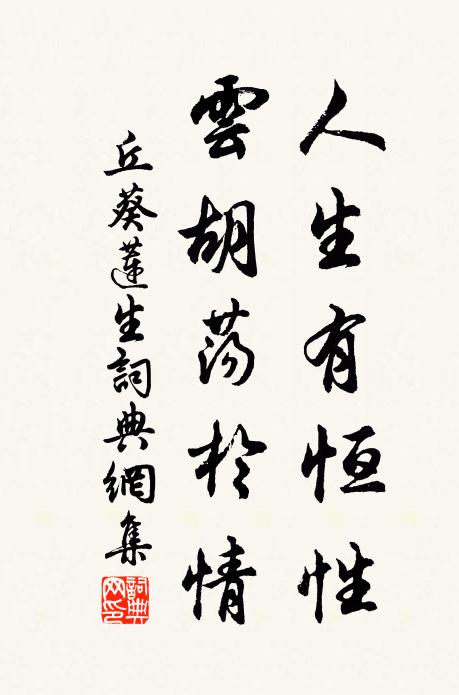 人生有恒性
雲胡荡於情
丘葵蓮生詞典網集
詞典網印